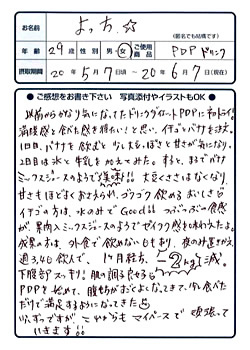 お名前
よっち☆
(匿名でも結構です)
年齢 29歳 性別 男・女 ご使用商品 PDPドリンク
摂取期間 20年5月7日頃〜20年6月7日(現在)
● ご感想をお書き下さい 写真添付やイラストもOK ●
以前からかなり気になってたドリンクダイエットPDPに初トライ!!
満腹感と食べた感を頼もしい!と思い、イチゴとバナナを注文
1日目、バナナを飲むと少し大豆っぽさと甘さが気になり、
2日目は水と牛乳を加えてみた。すると、まるでバナナ
ミックスジュースのようで美味!!大豆くささはなくなり、
甘さもほどよくおさえられ、ゴクゴク飲める おいしさ
イチゴの方は、水のみでGood!! つぶつぶの食感
が果肉入ミックスジュースのようでゼイタク感を味わえたよ。
成果の方は、外食で飲めない日もあり、夜のみ置きかえ
週3,4回飲んで、1ヶ月経ち、−2kg減。
下腹部スッキリ! 肌の調子良好
PDPを始めて、腹筋がほどよくなってきて、少し食べた
だけで満足するようになってきた
少しずつですが これからもマイペースで頑張って
いきます!!